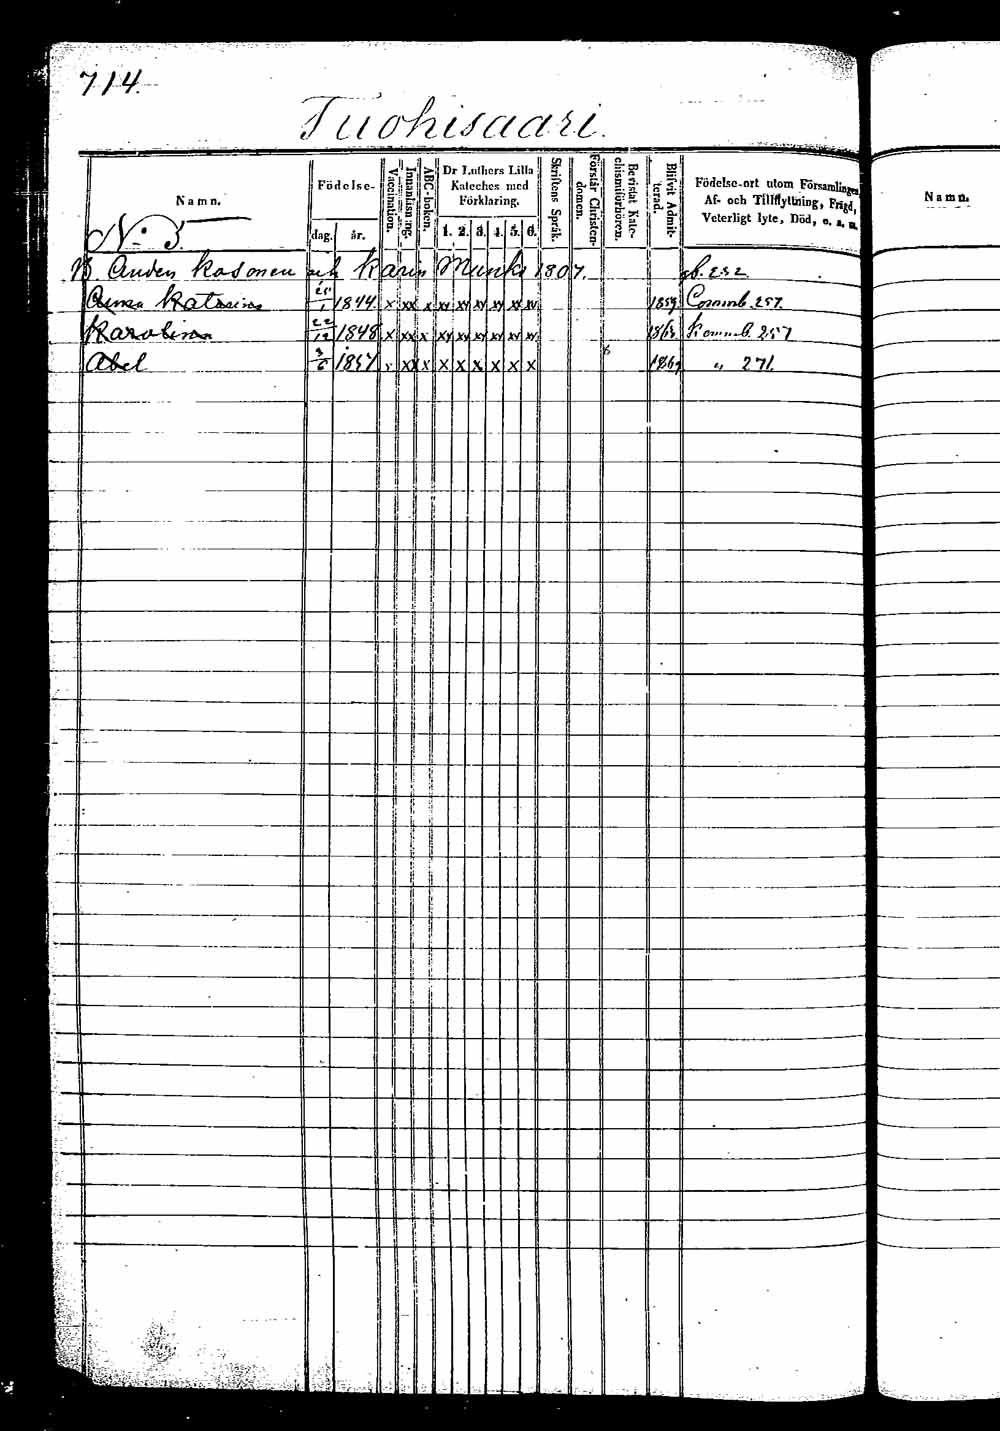 714.
Tuohisaari.
Namn.
Födelse-
dag. år.
Vaccination.
Innanläsning.
ABC-boken.
Dr Luthers Lilla
Kateches med
Förklaring.
1. 2. 3. 4. 5. 6.
Skriftens Språk.
Förstår Christen-
domen.
Bevistat Kate-
chismiförhören.
Blifvit Admit-
terad.
Födelse-ort utom Församlingen,
Af- och Tillflyttning, Frägd,
Veterligt lyte, Död, o. s. v.
Namn.
No 3.
Anders Kosonen och Karin Munk 1807. sb. 252
Anna Katarina 1 1844. x xx x xx xx xx xx xx xx 1859 Commb. 257.
Karolina 22/12 1848 x xx x xx xx xx xx xx xx Kommb. 257
Abel 3/6 1857 x xx x x x x x x x 1869 „ 271.